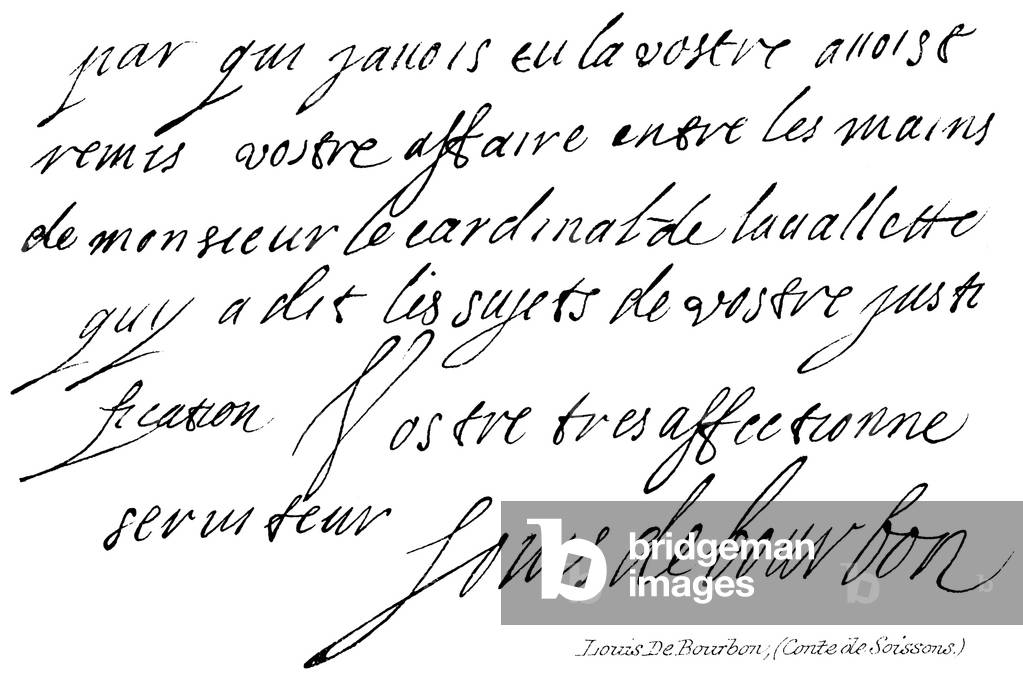 par qui jauois eu la vostre auois &
remis vostre affaire entre les mains
de monsieur le cardinal de lauallette
quy a dit les sujets de vostre justi
fication Vostre tres affectionne
seruiteur Louis de bourbon
bridgeman
images
Louis De Bourbon, (Conte de Soissons.)